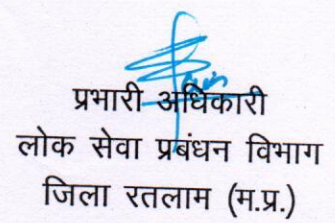 प्रभारी अधिकारी
लोक सेवा प्रबंधन विभाग
जिला रतलाम (म.प्र.)